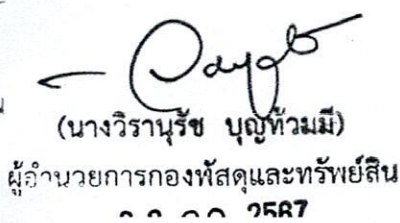 (นางวิรานุรัช บุญท้วมมี)
ผู้อำนวยการกองพัสดุและทรัพย์สิน
2567